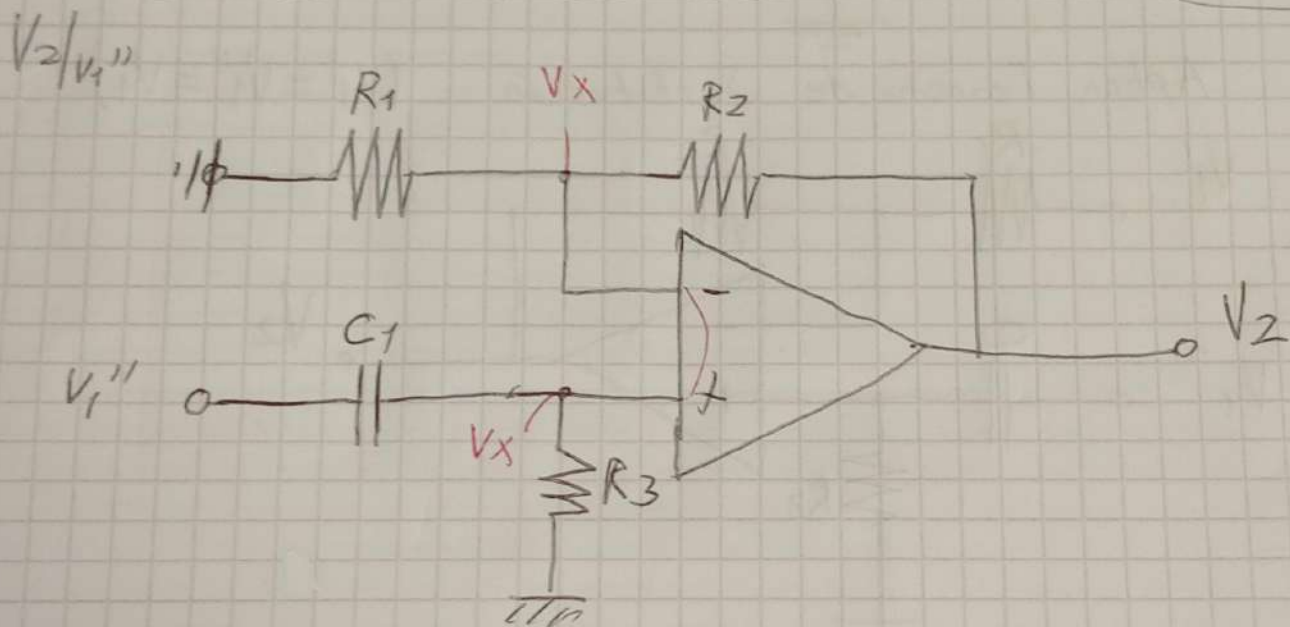 V2/V1''
R1
Vx
R2
-
C1
V1''
V2
+
Vx
R3